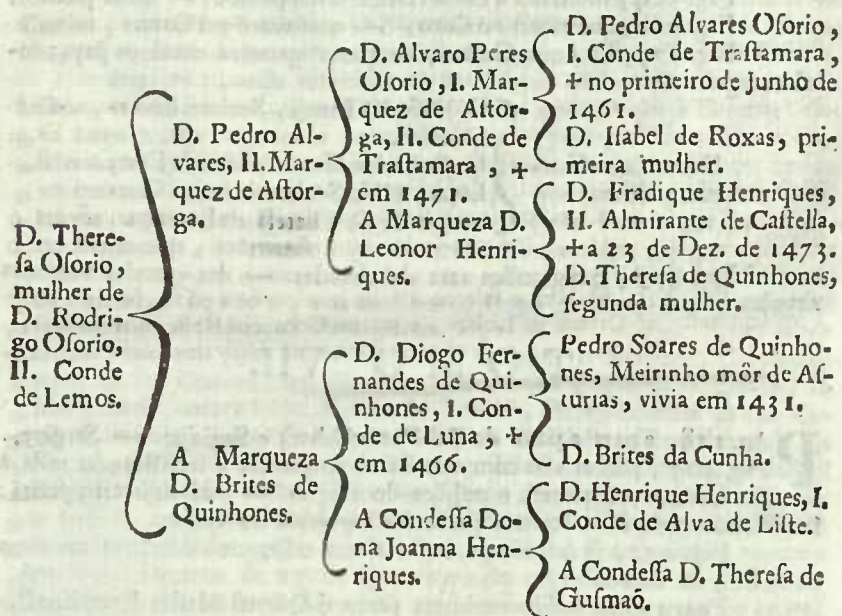 D. There-
ſa Oſorio,
mulher de
D. Rodri-
go Oſorio,
II. Conde
de Lemos.
D. Pedro Al-
vares, II. Mar-
quez de Aſtor-
ga.
A Marqueza
D. Brites de
Quinhones.
D. Alvaro Peres
Oſorio, I. Mar-
quez de Aſtor-
ga, II. Conde de
Traſtamara, +
em 1471.
A Marqueza D.
Leonor Henri-
ques.
D. Diogo Fer-
nandes de Qui-
nhones, I. Con-
de de Luna; +
em 1466.
A Condeſſa Do-
na Joanna Hen-
riques.
D. Pedro Alvares Oſorio,
I. Conde de Traſtamara,
+ no primeiro de Junho de
1461.
D. Iſabel de Roxas, pri-
meira mulher.
D. Fradique Henriques,
II. Almirante de Caſtella,
+ a 23 de Dez. de 1473.
D. Thereſa de Quinhones,
ſegunda mulher.
Pedro Soares de Quinho-
nes, Meirinho môr de Aſ-
turias, vivia em 1431.
D. Brites da Cunha.
D. Henrique Henriques, I.
Conde de Alva de Liſte.
A Condeſſa D. Thereſa de
Guſmaõ.